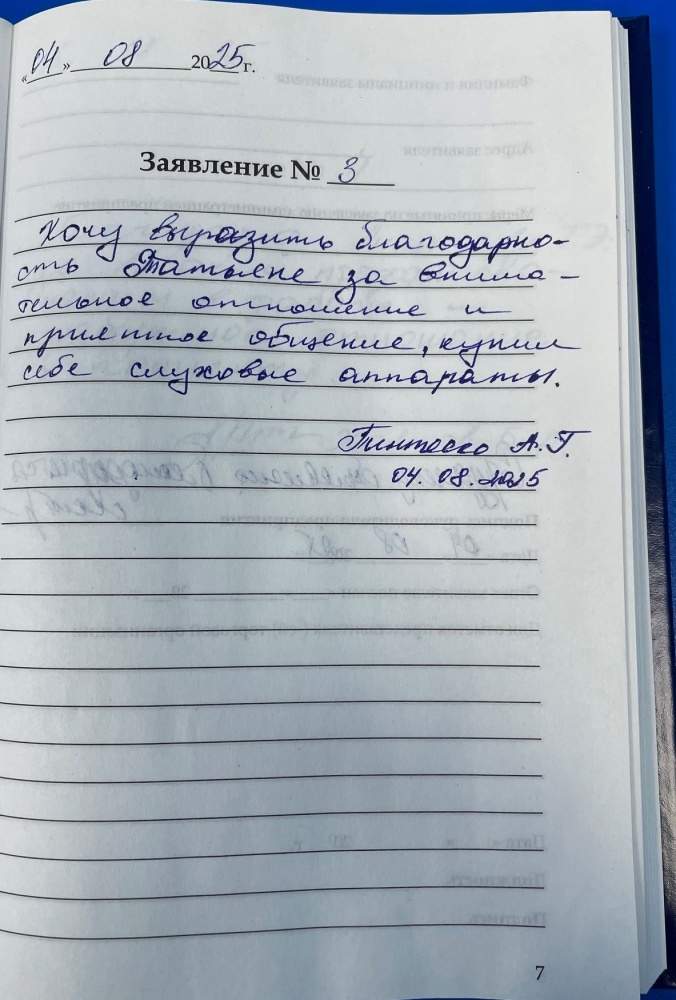 «04» 08 2025 г.
Заявление № 3
Хочу выразить благодарно-
сть Татьяне за внима-
тельное отношение и
приятное общение, купил
себе слуховые аппараты.
Гинтеско А.Г.
04. 08. 2025
7